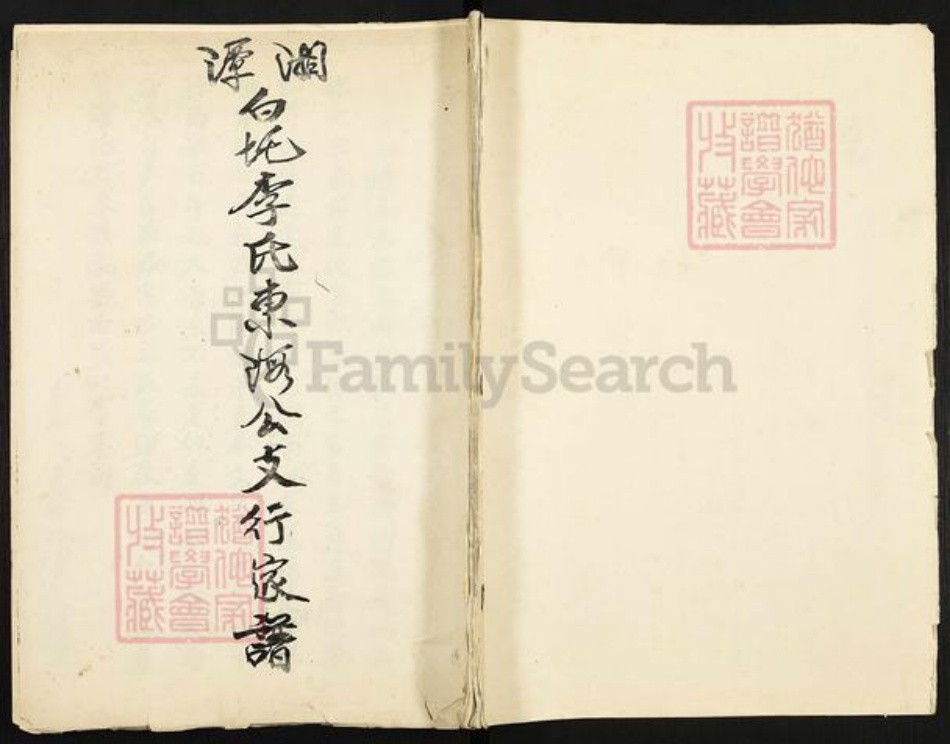 湘潭
白圫李氏東㘭公支行家譜
猶他家譜學會收藏
猶他家譜學會收藏
FamilySearch